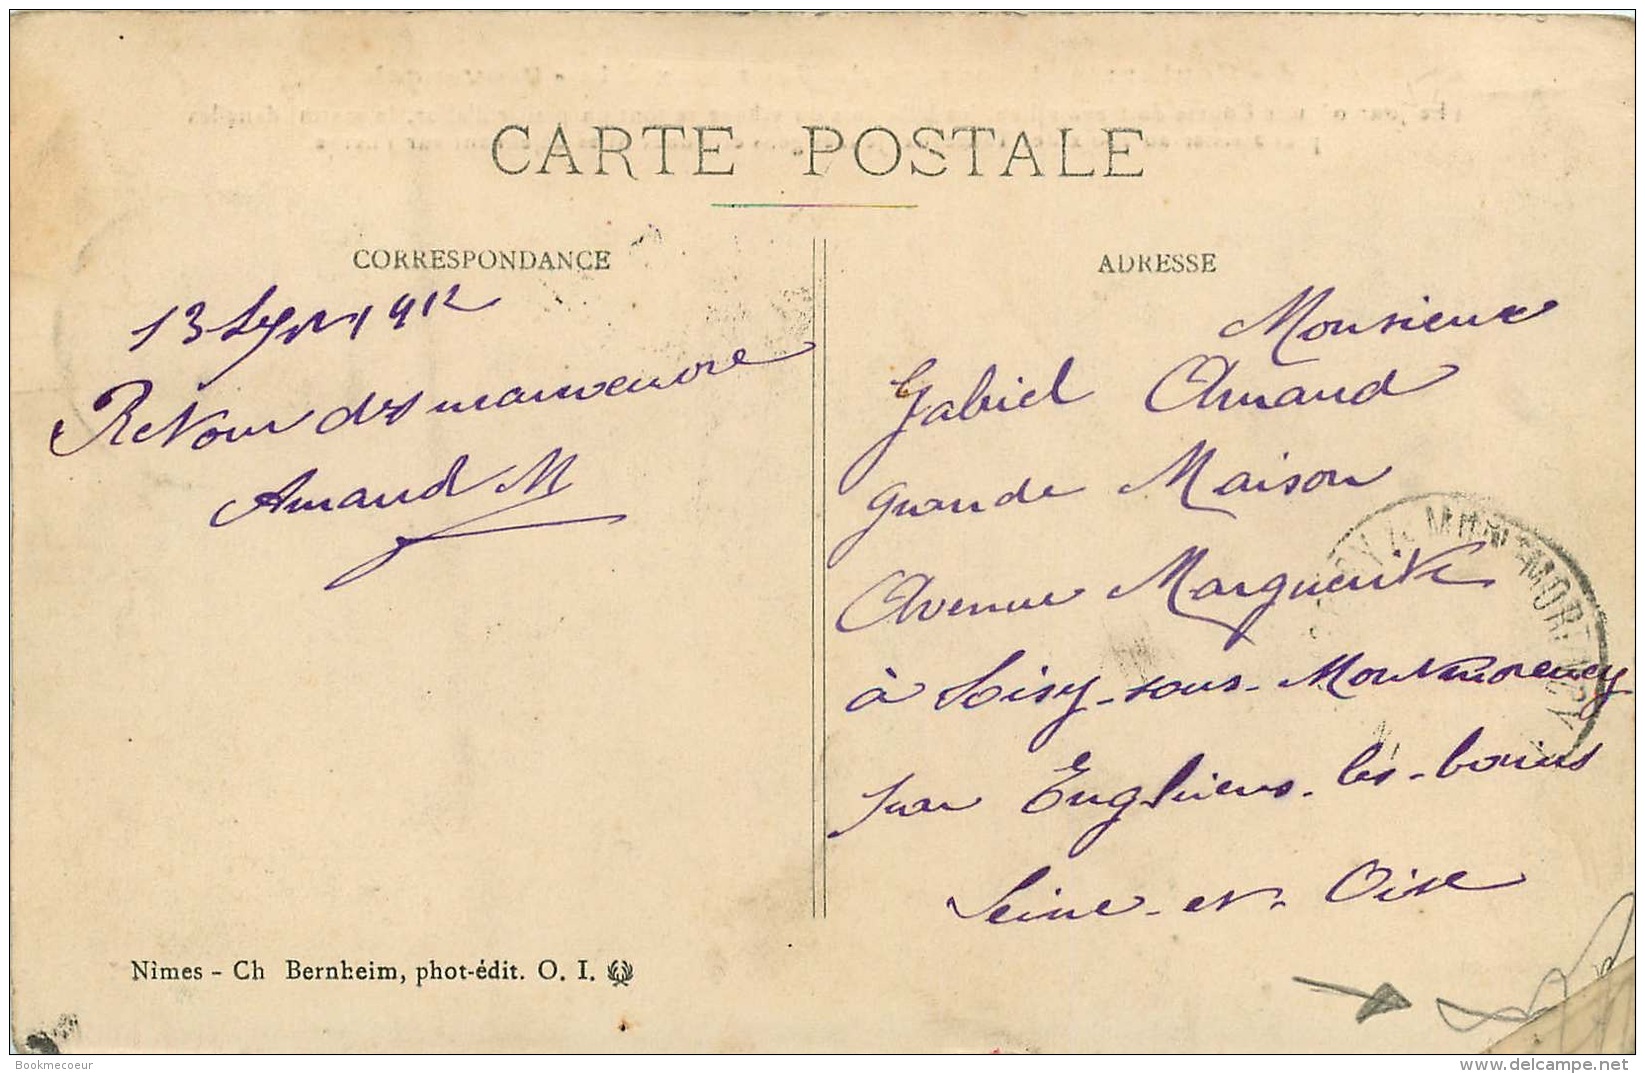 CARTE POSTALE
CORRESPONDANCE
13 Sept 1912
Retour des manoeuvre
Amand M
Nîmes - Ch Bernheim, phot-édit. O. I.
ADRESSE
Monsieur
Gabriel Amand
Grande Maison
Avenue Marguerite
à Soisy-sous-Montmorency
par Enghiens-les-bains
Seine-et-Oise
MONTMORENCY
Bookmecoeur
www.delcampe.net